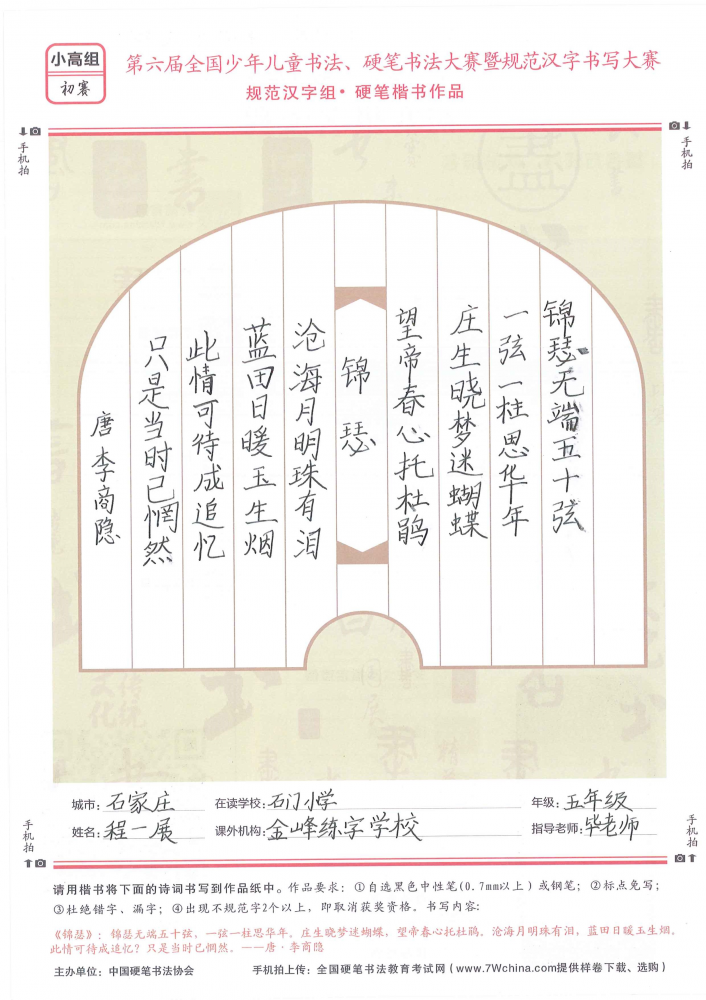 小高组
初赛
第六届全国少年儿童书法、硬笔书法大赛暨规范汉字书写大赛
规范汉字组·硬笔楷书作品
手机拍
手机拍
锦瑟无端五十弦
一弦一柱思华年
庄生晓梦迷蝴蝶
望帝春心托杜鹃
锦瑟
沧海月明珠有泪
蓝田日暖玉生烟
此情可待成追忆
只是当时已惘然
唐李商隐
城市：石家庄 在读学校：石门小学 年级：五年级
姓名：程一展 课外机构：金峰练字学校 指导老师：毕老师
手机拍
手机拍
请用楷书将下面的诗词书写到作品纸中。作品要求：①自选黑色中性笔(0.7mm以上）或钢笔；②标点免写；
③杜绝错字、漏字；④出现不规范字2个以上，即取消获奖资格。书写内容：
《锦瑟》：锦瑟无端五十弦，一弦一柱思华年。庄生晓梦迷蝴蝶，望帝春心托杜鹃。沧海月明珠有泪，蓝田日暖玉生烟。
此情可待成追忆？只是当时已惘然。——唐·李商隐
主办单位：中国硬笔书法协会 手机拍上传：全国硬笔书法教育考试网（www.7Wchina.com提供样卷下载、选购）